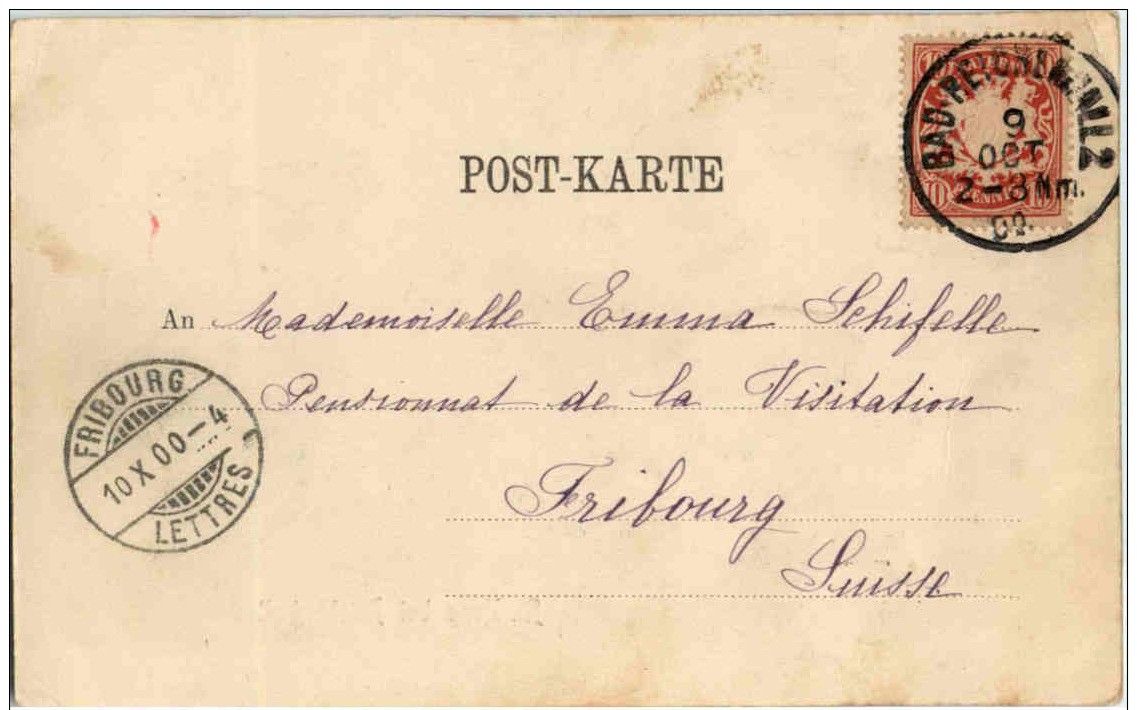 BAD-REICHENHALL 2
9
OCT
2-3 Nm.
00.
10
POST-KARTE
An Mademoiselle Emma Schifelle
Pensionnat de la Visitation
Fribourg
Suisse
FRIBOURG
10 X 00-4
LETTRES